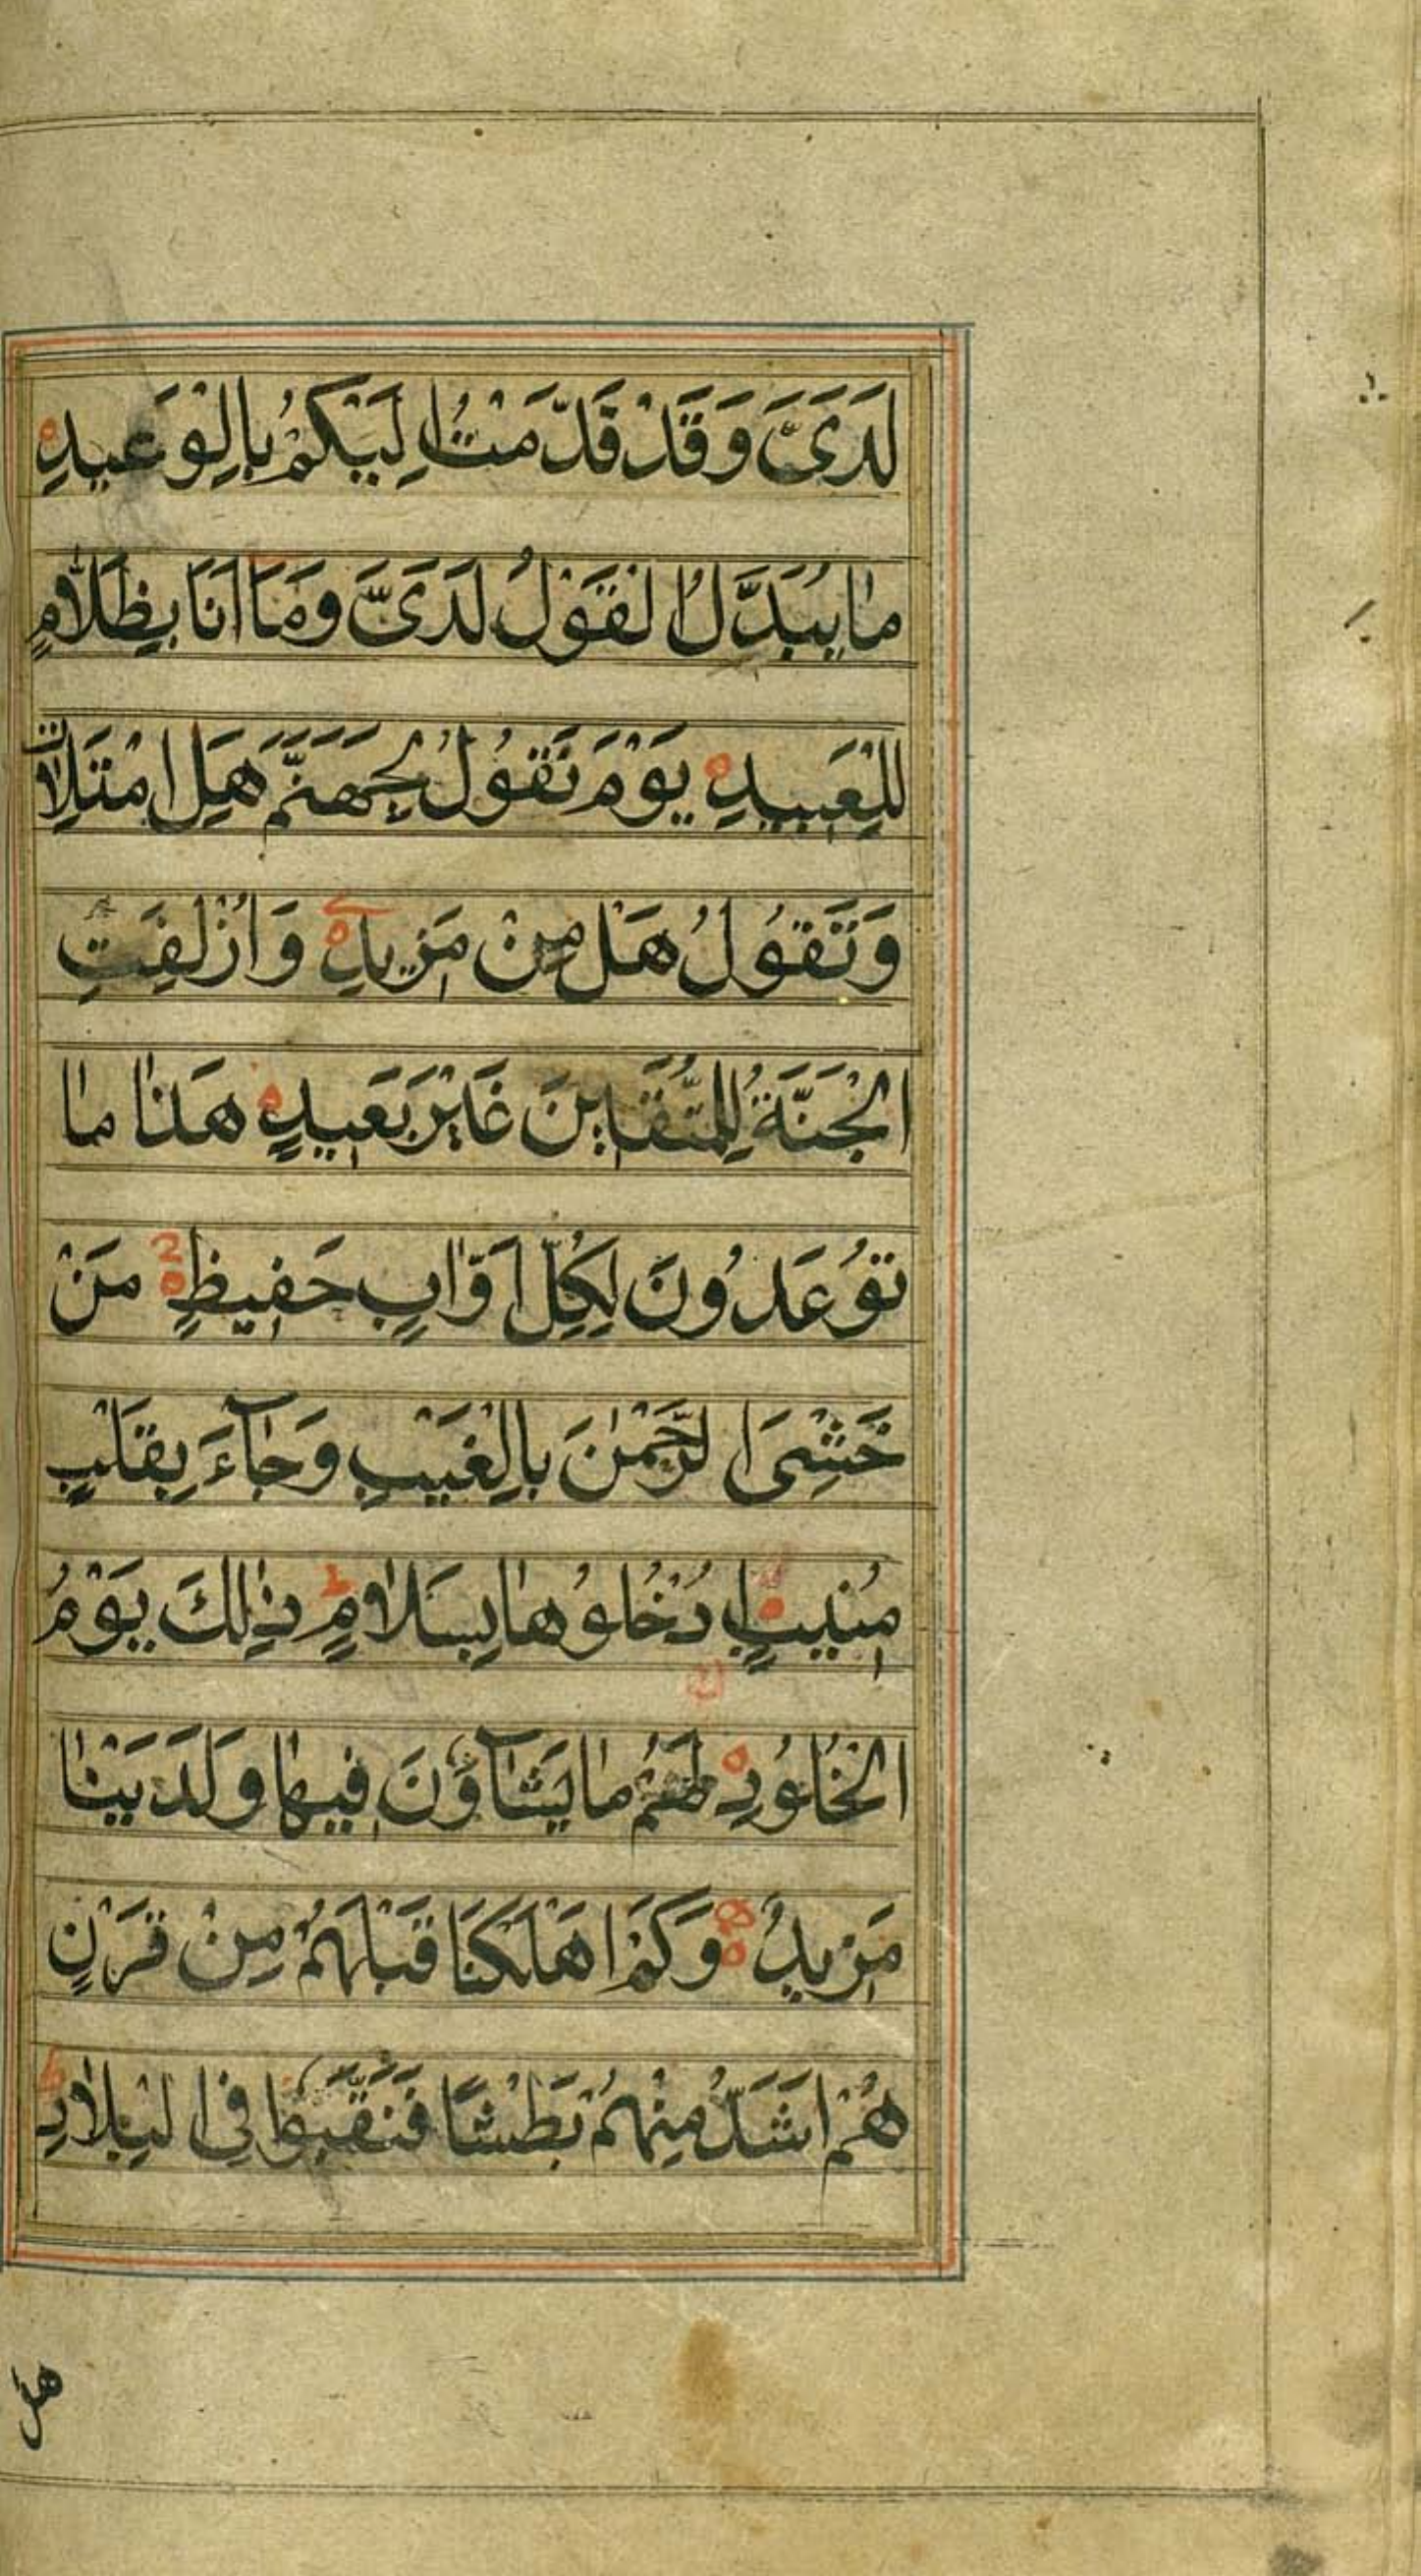 لَدَیَّ وَقَدْ قَدَّمْتُ اِلَيْكُمْ بِالْوَعِيدِ
مٰا يُبَدَّلُ الْقَوْلُ لَدَیَّ وَمَٓا اَنَا بِظَلّٰامٍ
لِلْعَبِيدِ يَوْمَ نَقُولُ لِجَهَنَّمَ هَلِ امْتَلَاْتِ
وَتَقُولُ هَلْ مِنْ مَزِيدٍ وَاُزْلِفَتِ
الْجَنَّةُ لِلْمُتَّقِينَ غَيْرَ بَعِيدٍ هَذٰا مٰا
تُوعَدُونَ لِكُلِّ اَوّٰابٍ حَفِيظٍ مَنْ
خَشِیَ الرَّحْمٰنَ بِالْغَيْبِ وَجٰآءَ بِقَلْبٍ
مُنِيبٍ ادْخُلُوهٰا بِسَلٰامٍ ذٰلِكَ يَوْمُ
الْخُلُودِ لَهُمْ مٰا يَشٰآؤُنَ فِيهٰا وَلَدَيْنٰا
مَزِيدٌ وَكَمْ اَهْلَكْنَا قَبْلَهُمْ مِنْ قَرْنٍ
هُمْ اَشَدُّ مِنْهُمْ بَطْشًا فَنَقَّبُوا فِی الْبِلٰادِ
هل